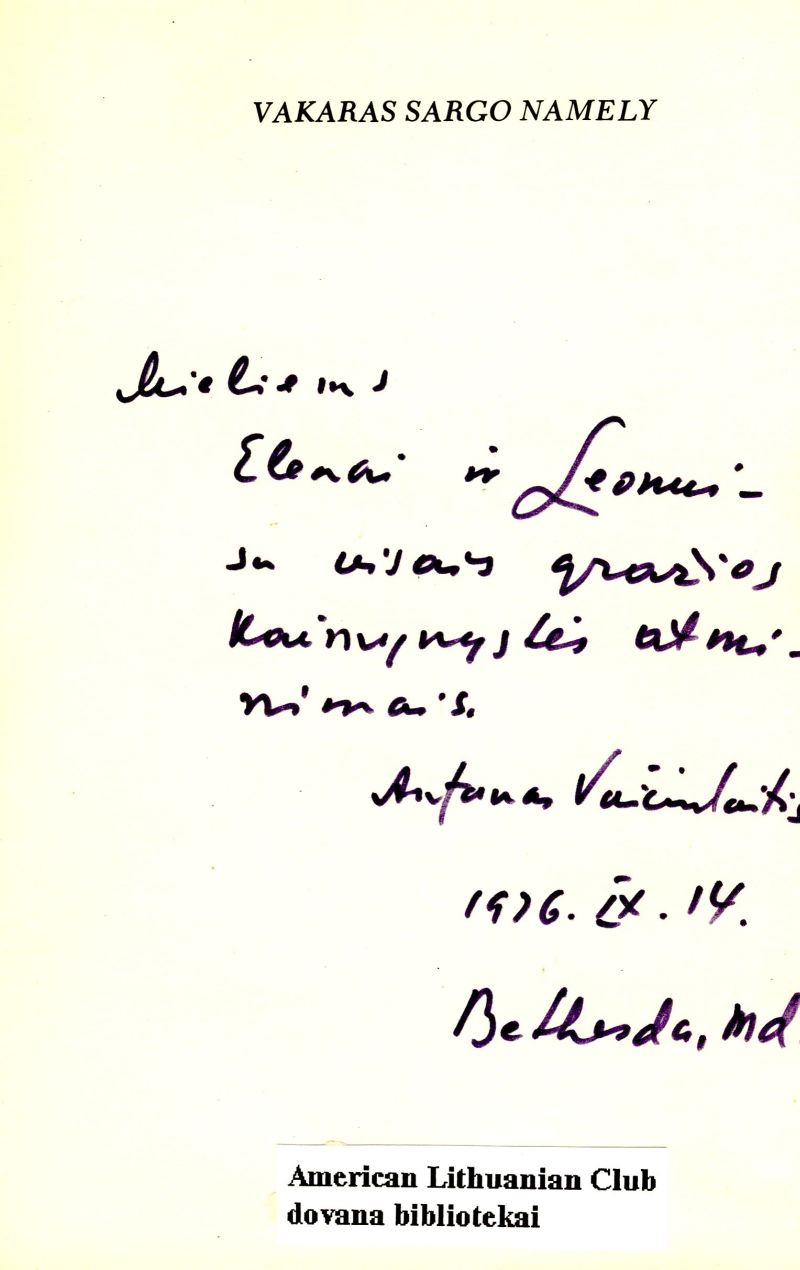 VAKARAS SARGO NAMELY
Mieliems
Elenai ir Leonui –
su visais gražios
Kaimynystės atmi-
nimais.
Antanas Vaičiulaitis
1976. IX. 14.
Bethesda, Md.
American Lithuanian Club
dovana bibliotekai